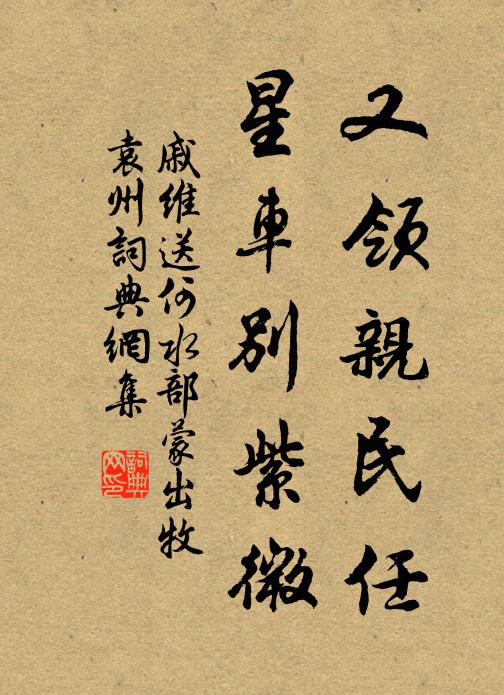 又領親民任
星車別紫微
戚維送何水部蒙出牧
袁州詞典網集
詞典
网印